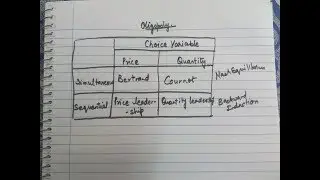 Oligopoly
Choice Variable
Price Quantity
Simultaneous Bertrand Cournot Nash Equilibrium
Sequential Price leader-ship Quantity leadership Backward Induction